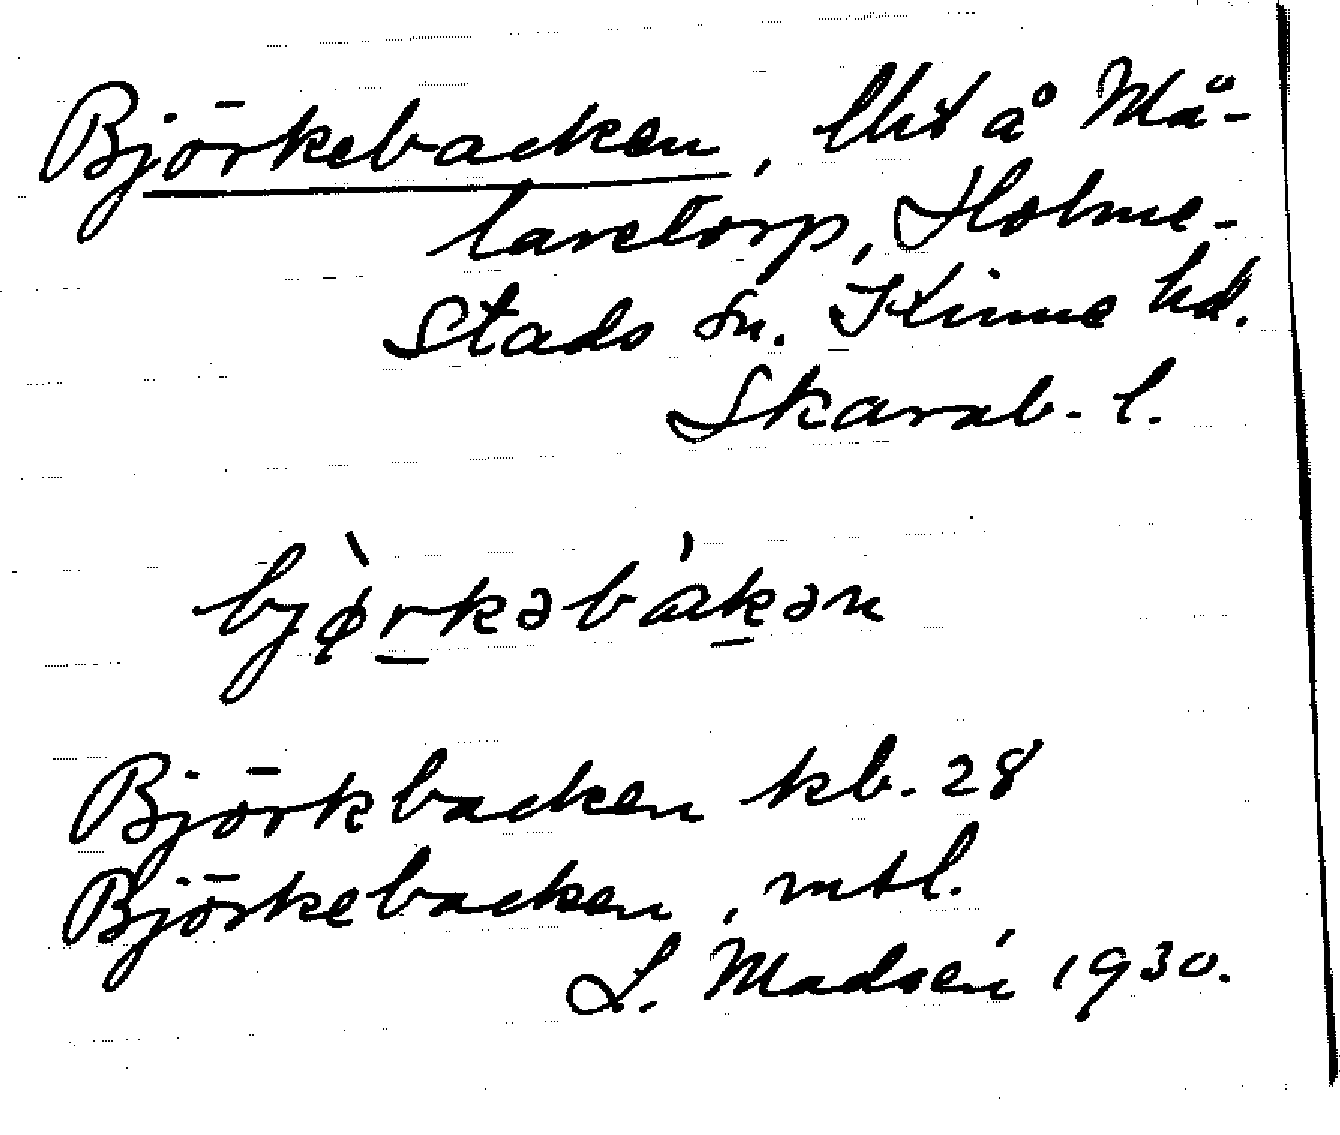 Björkebacken, lht å Må-
laretorp, Holme-
stads sn. Kinne hd.
Skarab. l.
bjø̀rkəbákən
Björkbacken kb. 28
Björkebacken, mtl.
L. Madsén 1930.